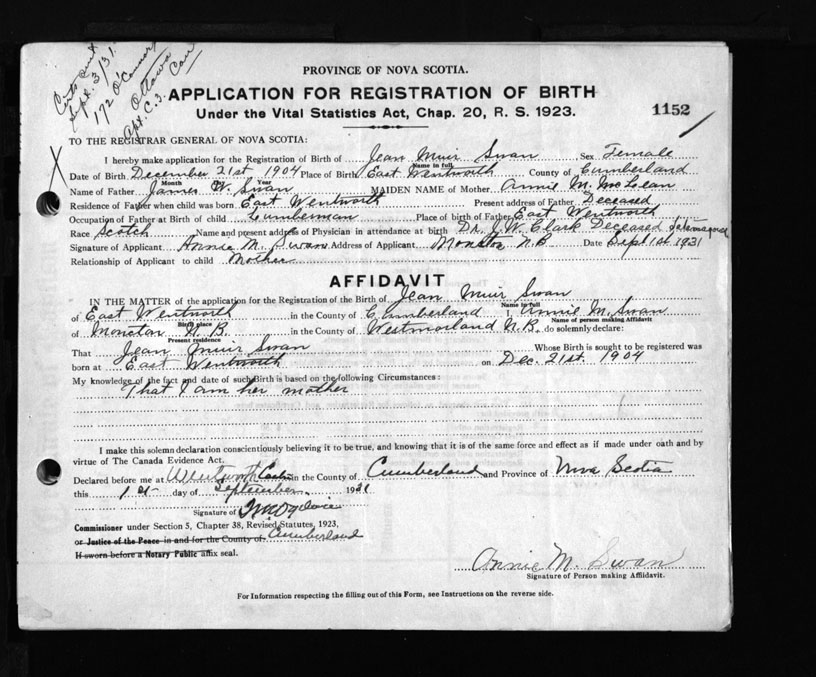 Certs sent
Sept. 3/31.
172 O'Connor
Ottawa
Apt. C.3. Can
PROVINCE OF NOVA SCOTIA.
APPLICATION FOR REGISTRATION OF BIRTH
Under the Vital Statistics Act, Chap. 20, R. S. 1923.
1152
TO THE REGISTRAR GENERAL OF NOVA SCOTIA:
I hereby make application for the Registration of Birth of Jean Muir Swan Sex Female
Name in full
Date of Birth December 21st 1904 Place of Birth East Wentworth County of Cumberland
Month Year
Name of Father James W. Swan MAIDEN NAME of Mother Annie M. McLean
Residence of Father when child was born East Wentworth Present address of Father Deceased
Occupation of Father at Birth of child Lumberman Place of birth of Father East Wentworth
Race Scotch Name and present address of Physician in attendance at birth Dr. J. W. Clark Deceased Tatamagouche
Signature of Applicant Annie M. Swan Address of Applicant Moncton N.B. Date Sept 1st 1931
Relationship of Applicant to child Mother
AFFIDAVIT
IN THE MATTER of the application for the Registration of the Birth of Jean Muir Swan
Name in full
of East Wentworth in the County of Cumberland I, Annie M. Swan
Birth place Name of person making Affidavit
of Moncton N.B. in the County of Westmorland N.B. do solemnly declare:
Present residence
That Jean Muir Swan Whose Birth is sought to be registered was
born at East Wentworth on Dec. 21st. 1904
My knowledge of the fact and date of such Birth is based on the following Circumstances:
That I am her mother
I make this solemn declaration conscientiously believing it to be true, and knowing that it is of the same force and effect as if made under oath and by
virtue of The Canada Evidence Act.
Declared before me at Wentworth Centre in the County of Cumberland and Province of Nova Scotia
this 1st day of September 1931
Signature of
Commissioner under Section 5, Chapter 38, Revised Statutes, 1923,
or Justice of the Peace in and for the County of Cumberland
If sworn before a Notary Public affix seal.
Annie M. Swan
Signature of Person making Affidavit.
For Information respecting the filling out of this Form, see Instructions on the reverse side.